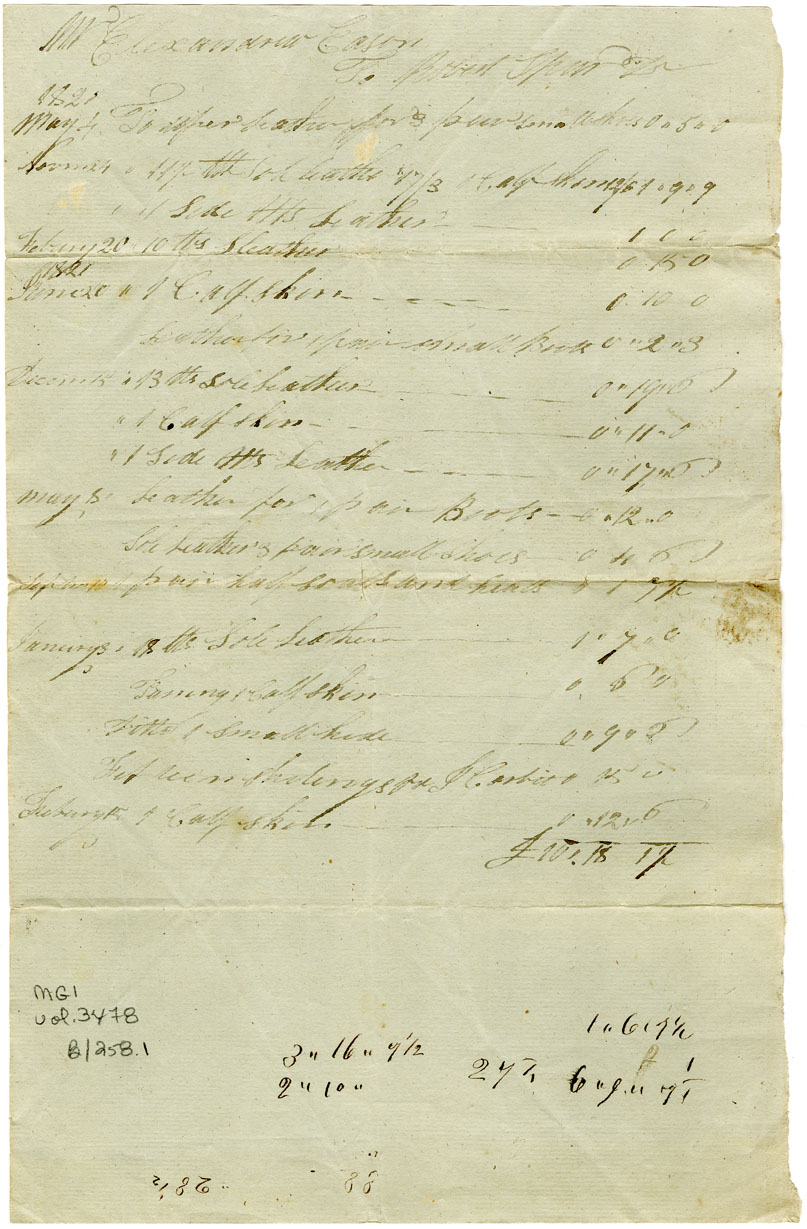 Mr Elexandrew Cason
To Robert Spear Dr
1821
May 4 To uper leather for 3 pair small shoes 0 " 5 " 0
" 17 1/2 lbs Sole leather 1 Calf skin 1 " 9 " 9
" 1 Side leather 1 0 0
Febury 20 10 lbs Sleather 0 15 0
1821
June 20 " 1 Calf skin 0 10 0
Leather for 1 pair small Boots 0 " 2 " 3
Decem " 13 lbs Sole Leather 0 " 19 " 6
" 1 Calf skin 0 " 11 " 0
" 1 Side Leather 0 " 17 " 6
May 8 Leather for 1 pair Boots 0 " 12 " 0
Sole Leather 3 pair small shoes 0 4 6
1 pair half soals and heals " 1 7 1/2
Janury 3 18 lbs Sole Leather 1 " 7 " 0
Taning 1 Calf skin 0 6 " 0
Ditto 1 small hide 0 " 9 " 6
Fifteen shilings 15 0
Febury 1 Calf skin 0 " 12 " 6
£ 10 " 18 1 1/2
MG1
vol. 3478
B/258.1
1 " 6 " 9 1/2
3 " 16 " 9 1/2
2 " 10 "